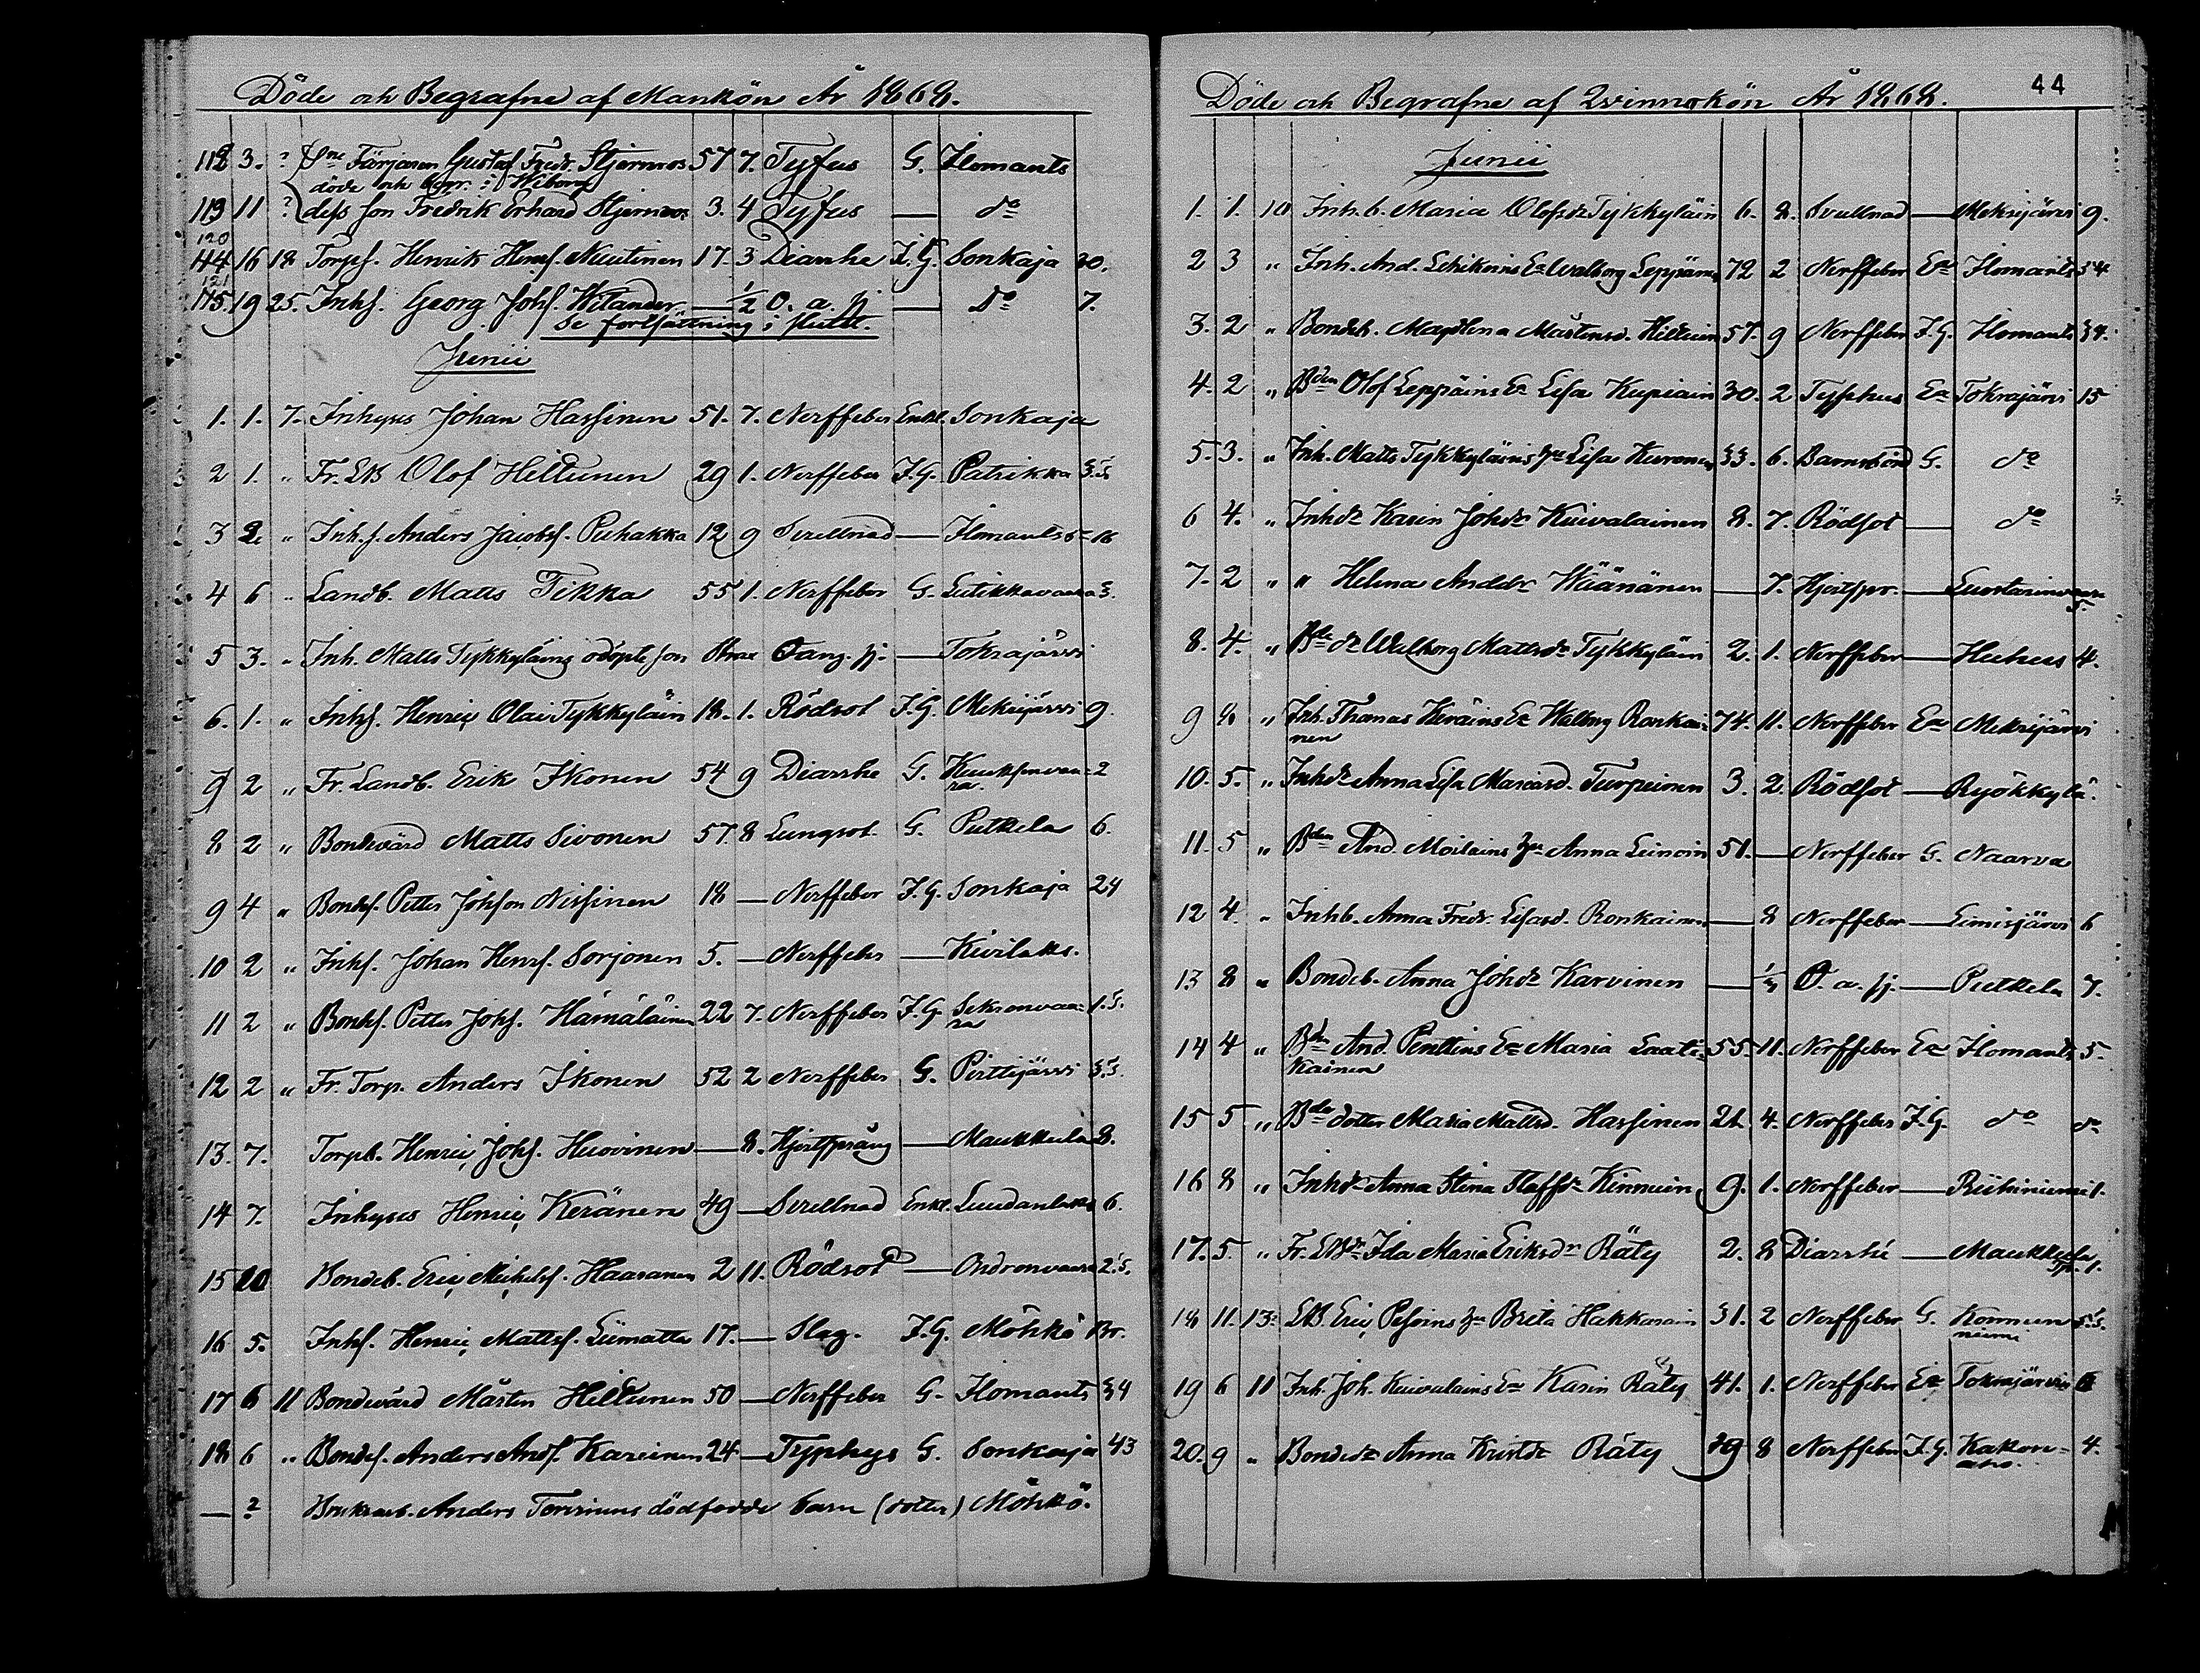 Döde och Begrafne af Mankön År 1868.
118 3. ? Färjaren Gustaf Fredr. Stjernvos 57 7. Tyfus G. Ilomants
döde och begr. i Wiborg
119 11 ? dess son Fredrik Erhard Stjernvos 3. 4 Tyfus — do
120
114 16 18 Torps. Henrik Henrs. Nuutinen 17. 3 Diarrhe I.G. Sonkaja 30.
121
115. 19 25. Inhs. Georg Johs. Wilander — 1/2 O. a. sj — Do 7.
Se fortsättning i slutet.
Junii
1. 1. 7. Inhyses Johan Hassinen 51. 7. Nerffeber Enkl. Sonkaja
2 1. " Fr. LB Olof Hiltunen 29 1. Nerffeber I.G. Patrikka 3.5.
3 2. " Inh.s. Anders Jacobs. Puhakka 12 9 Svullnad — Ilomants 16
4 6 " Landb. Matts Tikka 55 1. Nerffeber G. Lutikkavaara 3.
5 3. " Inh. Matts Tykkyläins odöpte son Oang. sj. — Tokrajärvi
6. 1. " Inhs. Henric Olai Tykkyläin 18. 1. Rödsot I.G. Mekrijärvi 9.
7 2 " Fr. Landb. Erik Ikonen 54 9 Diarrhe G. Kuuksenvaa=2
ra.
8 2 " Bondevärd Matts Sivonen 57. 8 Lungsot. G. Putkela 6.
9 4 " Bondes. Petter Johson Nissinen 18 — Nerffeber I.G. Sonkaja 24
10 2 " Inhs. Johan Henrs. Sorjonen 5. — Nerffeber — Kivilaks.
11 2 " Bondes. Petter Johs. Hämäläinen 22 7. Nerffeber I.G. Sikronvaa= 1.5.
ra
12 2 " Fr. Torp. Anders Ikonen 52 2 Nerffeber G. Pirttijärvi 3.5.
13. 7. Torpb. Henric Johs. Huovinen — 8. Hjertsprång — Maukkula 8.
14 7. Inhyses Henric Keränen 49 — Svullnad Enkl. Luudanlaks 6.
15 10 Bondeb. Eric Michels. Haaranen 2 11. Rödsot — Ondronvaara 2.5.
16 5. Inhs. Henric Mattss. Liimatta 17. — Slag. I.G. Möhkö Br.
17 6 11 Bondevärd Mårten Hiltunen 50 — Nerffeber G. Ilomants 34
18 6 " Bondes. Anders Ands. Kareinen 24 — Typhys G. Sonkaja 43
— 2 Bruksarb. Anders dödfödde barn (dotter) Möhkö.
Döde och Begrafne af Qvinnokön År 1868.
44
Junii
1. 1. 10 Inh.b. Maria Olofsdr Tykkyläin 6. 8. Svullnad — Mekrijärvi 9.
2 3 " Inh. And. Lehikoins Ea Walborg Leppänen 72 2 Nerffeber Ea Ilomants 34
3. 2 " Bondeh. Magdlena Mårtensd. Hiltuin 57. 9 Nerffeber I.G. Ilomants 34.
4. 2 " Bden Olof Leppäins Ea Lisa Kupiain 30. 2 Typhus Ea Tokrajärvi 15
5. 3. " Inh. Matts Tykkyläins hu Lisa Kuronen 33. 6. Barnsbörd G. do
6 4. " Inhdr Karin Johdr Kuivalainen 8. 7. Rödsot — do
7. 2 " " Helena Anddr Wäänänen — 7. Hjertspr. —
5.
8. 4. " Bde dr Walborg Mattsdr Tykkyläin 2. 1. Nerffeber — Huhus 4.
9 8 " Inh. Thomas Keräins Ea Walborg Ronkai= 74. 11. Nerffeber Ea Mekrijärvi
nen
10. 5. " Inhdr Anna Lisa Mariasd. Turpeinen 3. 2 Rödsot — Ryökkylä.
11. 5 " Bden And. Moilains hu Anna Leinoin 51. — Nerffeber G. Naarva
12 4. " Inhb. Anna Fredr. Lisasd. Ronkainen — 8 Nerffeber — Liusjärvi 6
13 8 " Bondeb. Anna Johdr Karvinen — O. a. sj. — Putkela 7.
14 4 " Bden And. Penttins Ea Maria Laati= 55. 11. Nerffeber Ea Ilomants 5.
kainen
15 5 " Bde dotter Maria Mattsd. Hassinen 21. 4. Nerffeber I.G. do do
16 8 " Inhdr Anna Stina Staffdr Kinnuin 9. 1. Nerffeber — Riihiniemi 1.
17. 5. " Fr. LBdr Ida Maria Eriksdr Räty 2. 8 Diarrhé — Maukkula 1.
18 11. 13. LB Eric Pesoins hu Brita Hakkarain 31. 2 Nerffeber G. Konnun 5.5.
niemi
19 6 11 Inh. Joh. Kuivalains Ea Karin Räty 41. 1. Nerffeber Ea Tokrajärvi
20. 9 " Bondedr Anna Kristdr Räty 39 8 Nerffeber I.G. Kakon= 4.
aho.